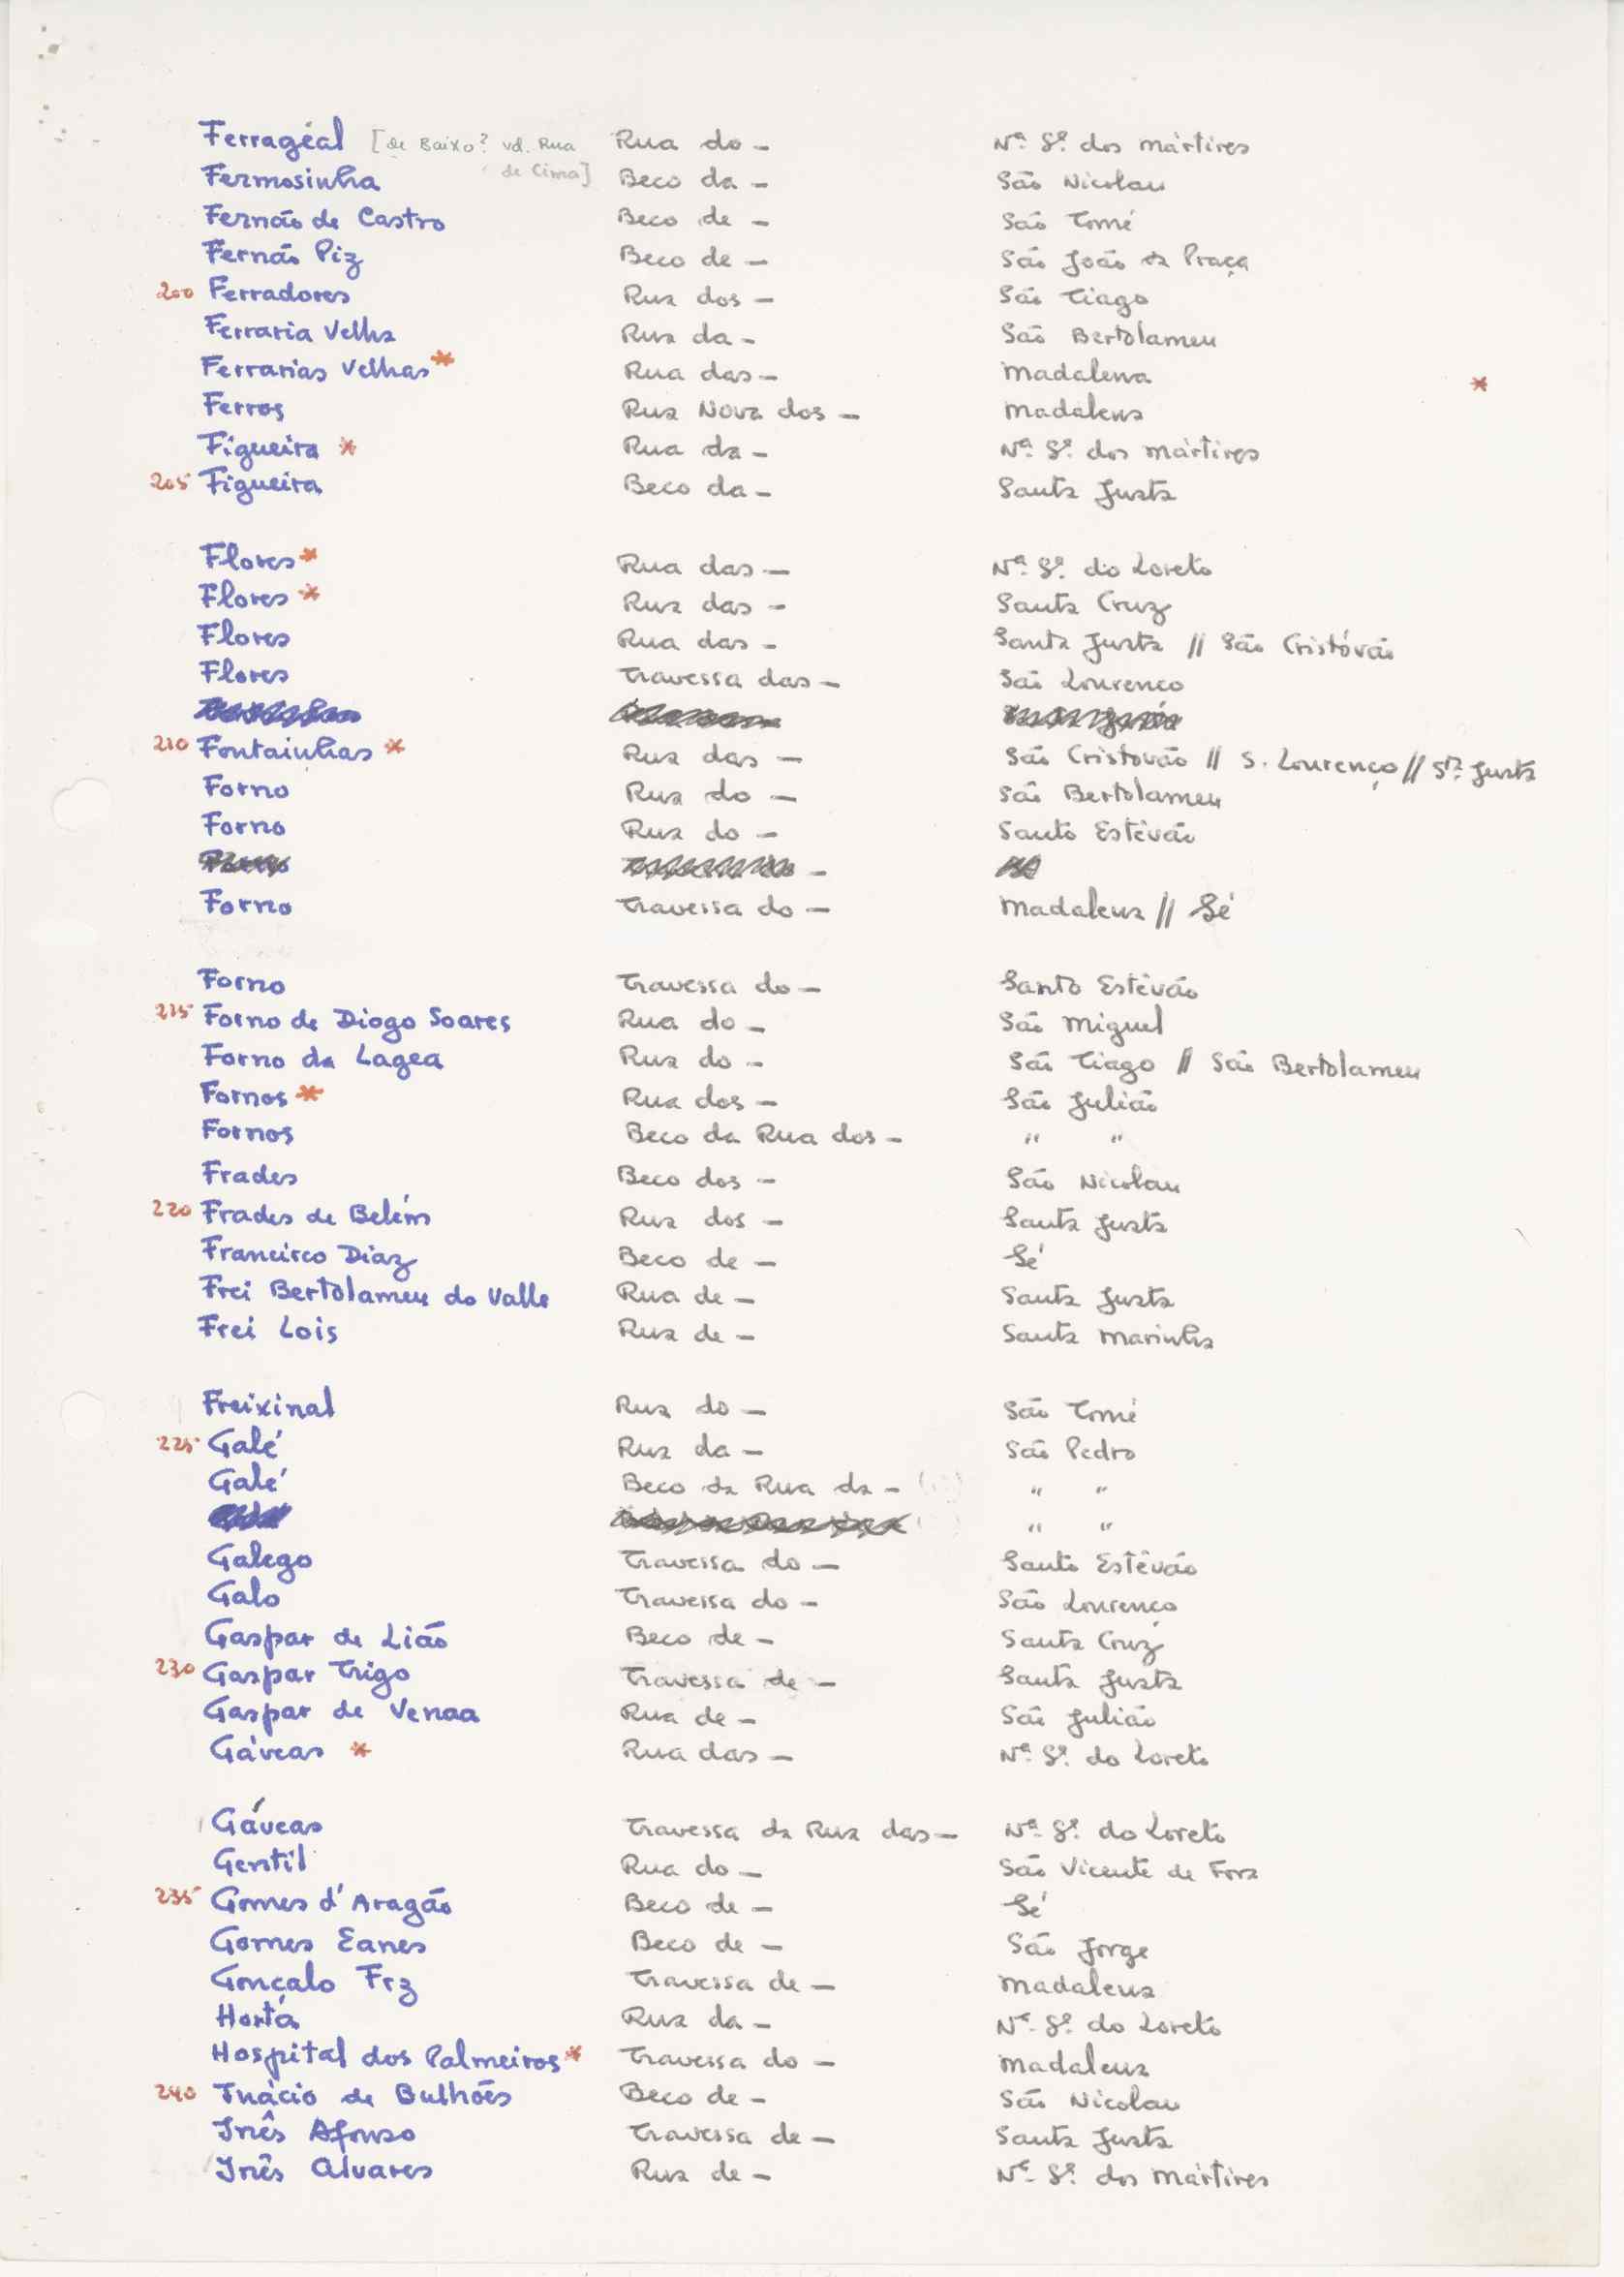 Ferragéal [de Baixo? vd. Rua Rua do - Nª. Sª. dos mártires
de Cima]
Fermosinha Beco da - São Nicolau
Fernão de Castro Beco de - São Tomé
Fernão Piz Beco de - São João da Praça
200 Ferradores Rua dos - São Tiago
Ferraria Velha Rua da - São Bertolameu
Ferrarias Velhas * Rua das - Madalena *
Ferros Rua Nova dos - Madalena
Figueira * Rua da - Nª. Sª. dos mártires
205 Figueira Beco da - Santa Justa
Flores * Rua das - Nª. Sª. do Loreto
Flores * Rua das - Santa Cruz
Flores Rua das - Santa Justa // São Cristóvão
Flores Travessa das - São Lourenço
210 Fontainhas * Rua das - São Cristovão // S. Lourenço // Stª. Justa
Forno Rua do - São Bertolameu
Forno Rua do - Santo Estêvão
Forno Travessa do - Madalena // Sé
Forno Travessa do - Santo Estêvão
215 Forno de Diogo Soares Rua do - São Miguel
Forno da Lagea Rua do - São Tiago // São Bertolameu
Fornos * Rua dos - São Julião
Fornos Beco da Rua dos - " "
Frades Beco dos - São Nicolau
220 Frades de Belém Rua dos - Santa Justa
Francisco Diaz Beco de - Sé
Frei Bertolameu do Valle Rua de - Santa Justa
Frei Lois Rua de - Santa Marinha
Freixinal Rua do - São Tomé
225 Galé Rua da - São Pedro
Galé Beco da Rua da - " "
" "
Galego Travessa do - Santo Estêvão
Galo Travessa do - São Lourenço
Gaspar de Lião Beco de - Santa Cruz
230 Gaspar Trigo Travessa de - Santa Justa
Gaspar de Venaa Rua de - São Julião
Gáveas * Rua das - Nª. Sª. do Loreto
Gáveas Travessa da Rua das - Nª. Sª. do Loreto
Gentil Rua do - São Vicente de Fora
235 Gomes d'Aragão Beco de - Sé
Gomes Eanes Beco de - São Jorge
Gonçalo Frz Travessa de - Madalena
Horta Rua da - Nª. Sª. do Loreto
Hospital dos Palmeiros * Travessa do - Madalena
240 Inácio de Bulhões Beco de - São Nicolau
Inês Afonso Travessa de - Santa Justa
Inês Alvares Rua de - Nª. Sª. dos Mártires